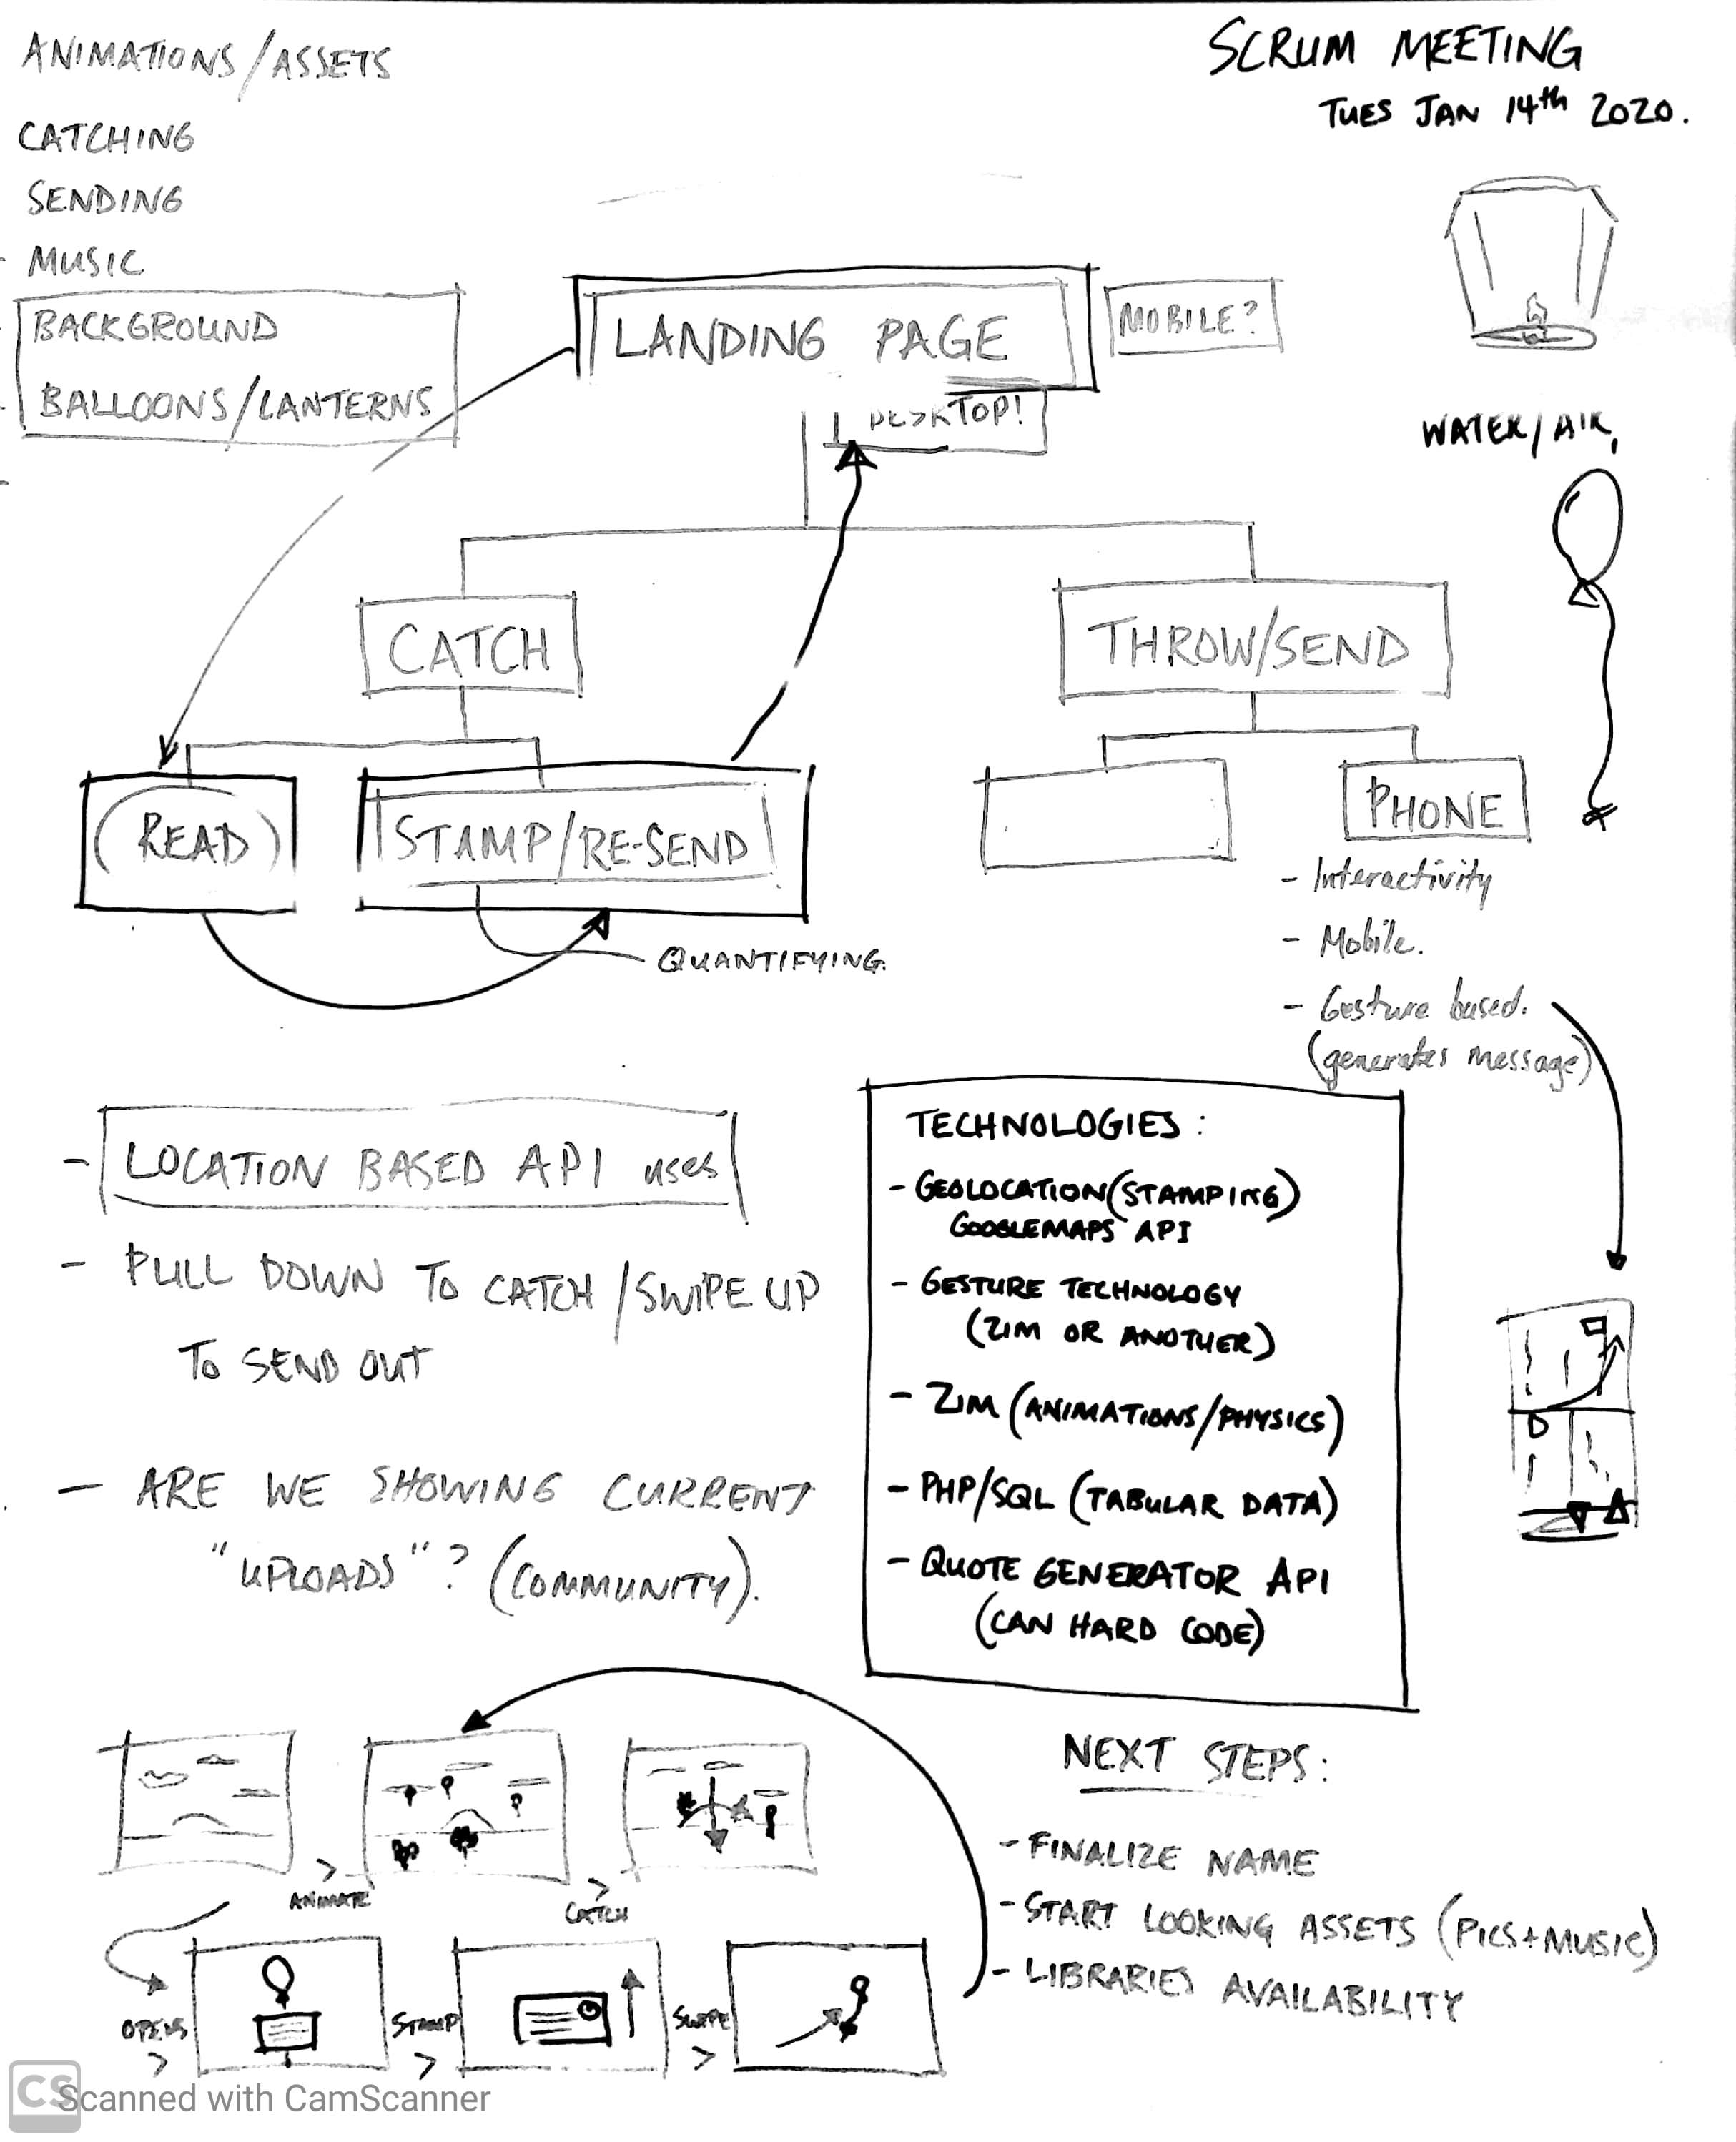 ANIMATIONS/ASSETS
CATCHING
SENDING
- MUSIC
BACKGROUND
BALLOONS/LANTERNS
SCRUM MEETING
TUES JAN 14th 2020.
LANDING PAGE
MOBILE?
DESKTOP!
WATER/AIR
CATCH
THROW/SEND
(READ)
STAMP/RE-SEND
QUANTIFYING.
PHONE
- Interactivity
- Mobile.
- Gesture based.
(generates message)
- LOCATION BASED API uses
- PULL DOWN TO CATCH/SWIPE UP
TO SEND OUT
- ARE WE SHOWING CURRENT
"UPLOADS"? (COMMUNITY).
TECHNOLOGIES:
- GEOLOCATION (STAMPING)
GOOGLEMAPS API
- GESTURE TECHNOLOGY
(ZIM OR ANOTHER)
- ZIM (ANIMATIONS/PHYSICS)
- PHP/SQL (TABULAR DATA)
- QUOTE GENERATOR API
(CAN HARD CODE)
ANIMATE
>
CATCH
>
OPENS
>
STAMP
>
SWIPE
>
NEXT STEPS:
- FINALIZE NAME
- START LOOKING ASSETS (PICS+MUSIC)
- LIBRARIES AVAILABILITY
CS Scanned with CamScanner